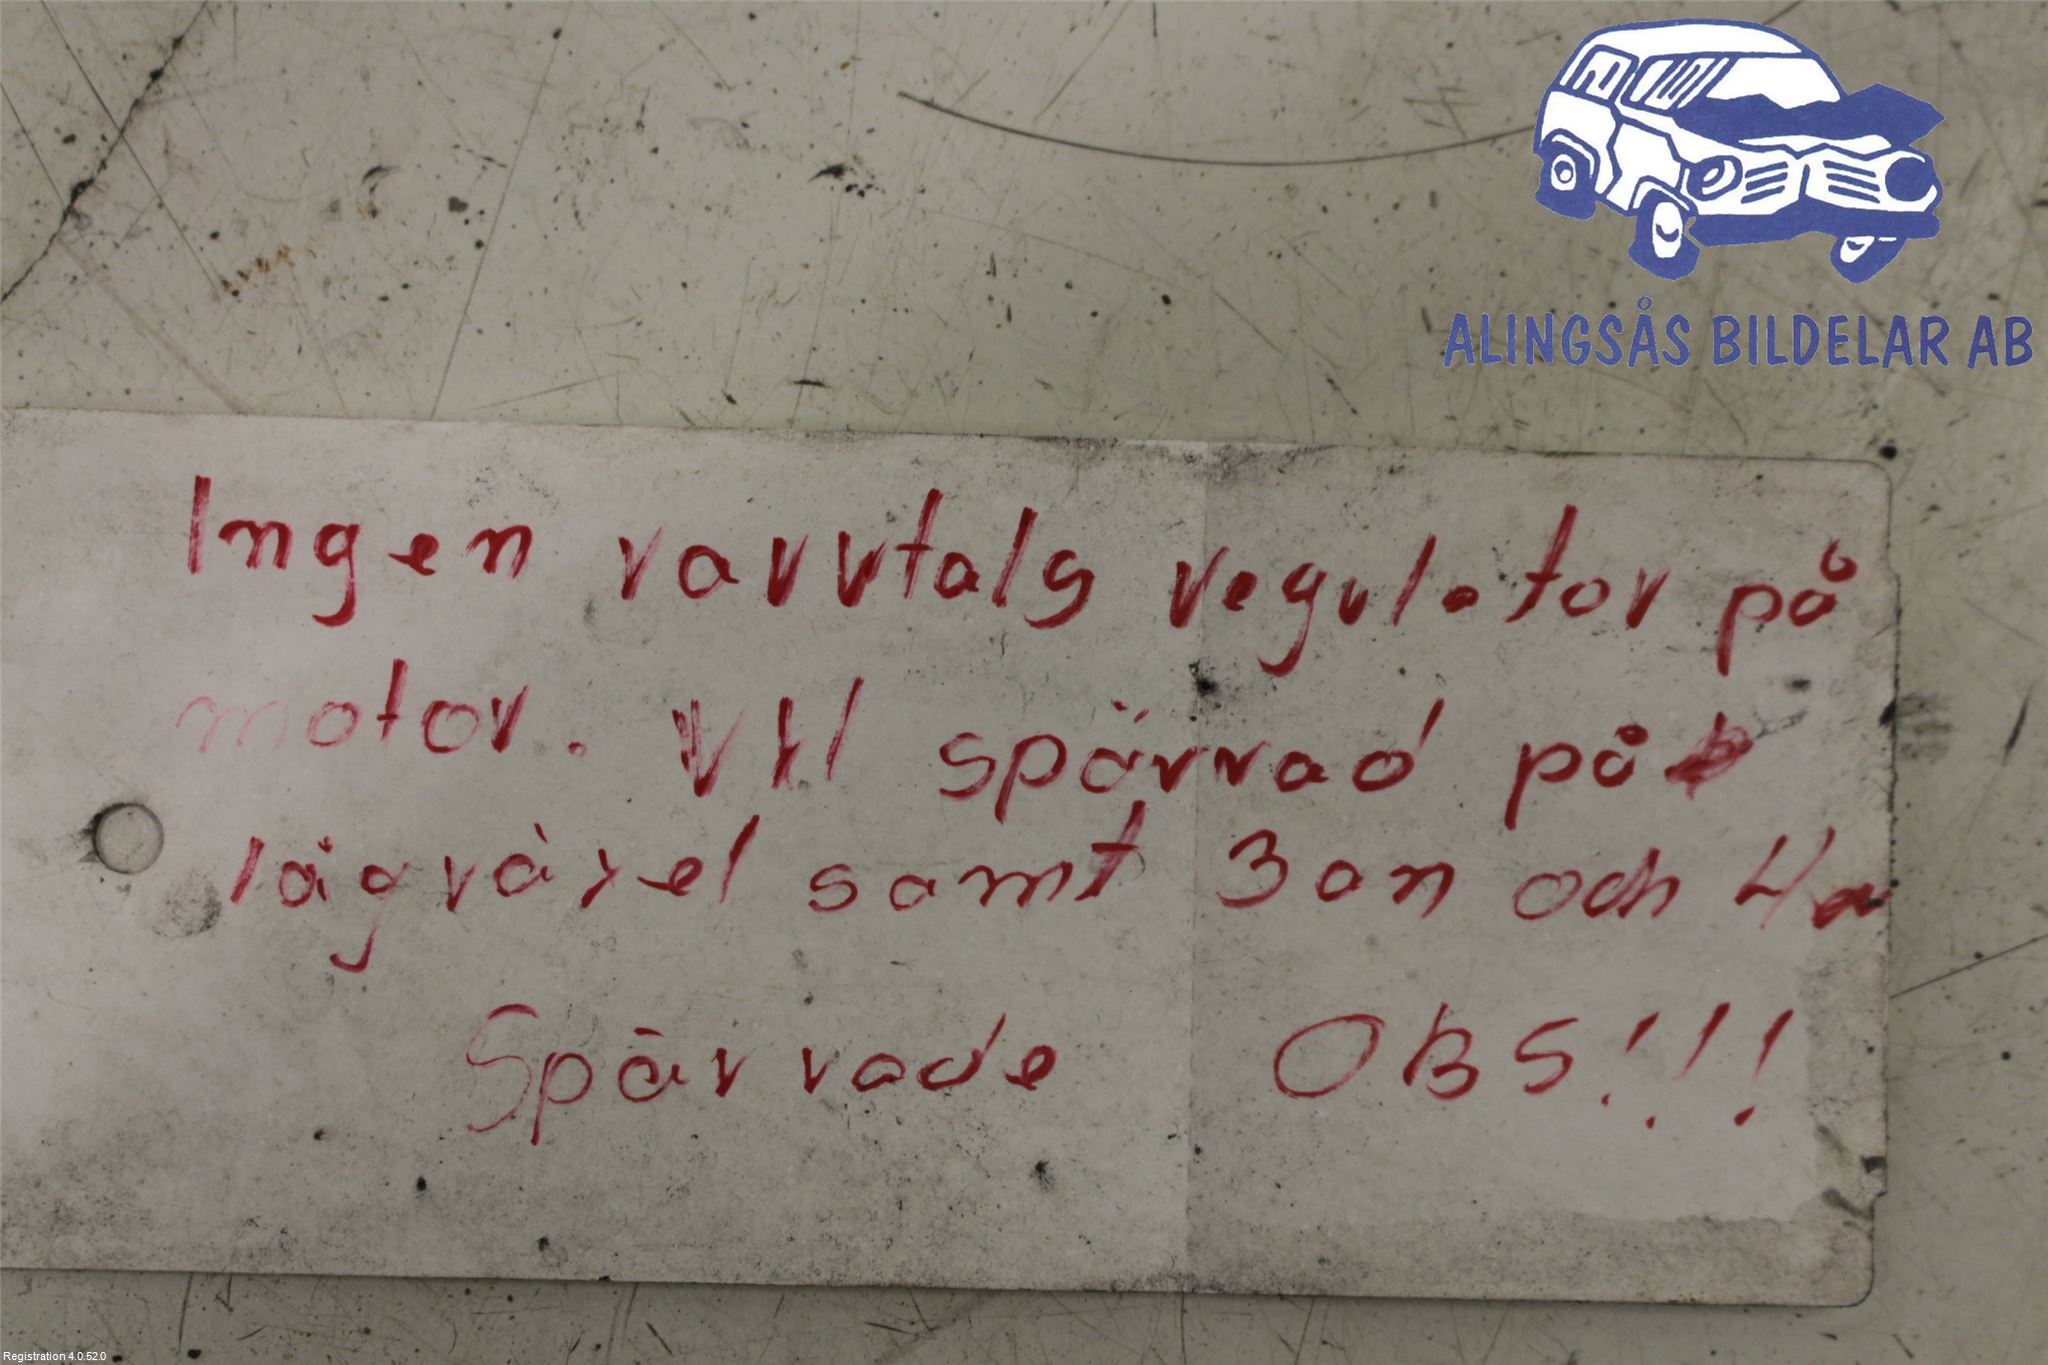 ALINGSÅS BILDELAR AB
Ingen varvtals regulator på
motor. VXL spärrad på
lågväxel samt 3an och 4a
Spärrade OBS!!!
Registration 4.0.52.0